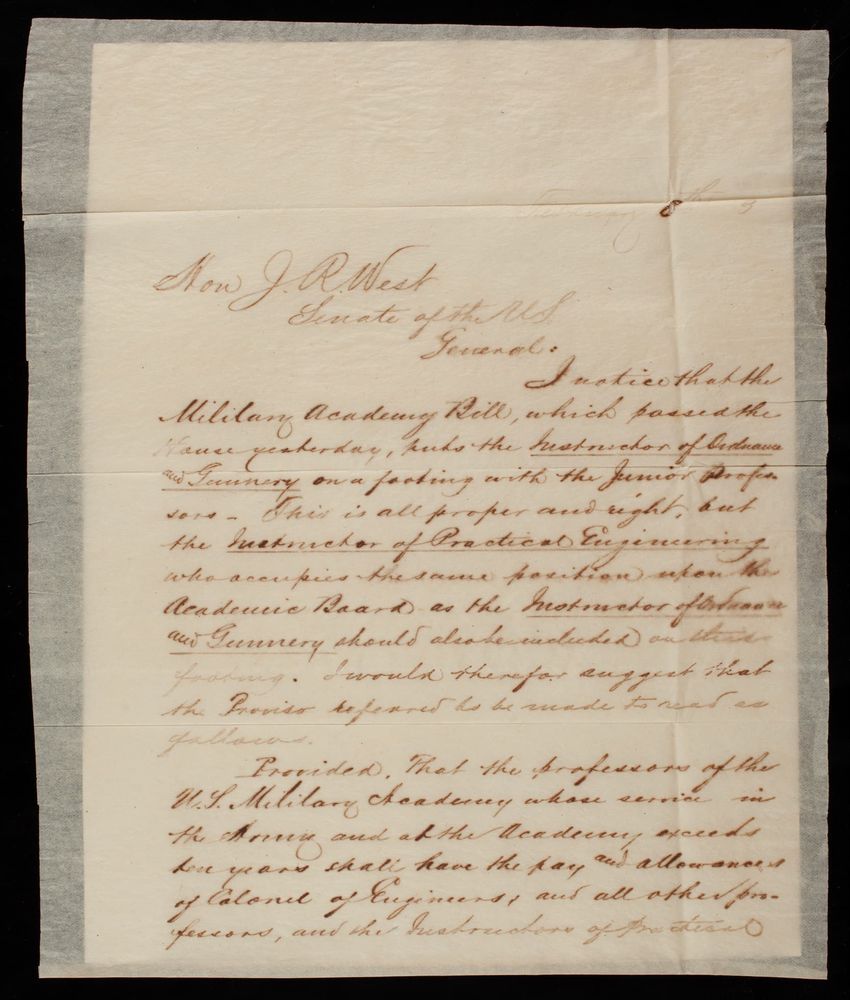 February th 3
Hon J. R. West
Senate of the US.
General:
I notice that the
Military Academy Bill, which passed the
House yesterday, puts the Instructor of Ordnance
and Gunnery on a footing with the Junior Profes-
sors - This is all proper and right, but
the Instructor of Practical Engineering
who occupies the same position upon the
Academic Board as the Instructor of Ordnance
and Gunnery should also be included on this
footing. I would therefor suggest that
the Proviso referred to be made to read as
follows.
Provided, That the professors of the
U.S. Military Academy whose service in
the Army and at the Academy exceeds
ten years shall have the pay and allowances
of Colonel of Engineers, and all other pro-
fessors, and the Instructors of Practical